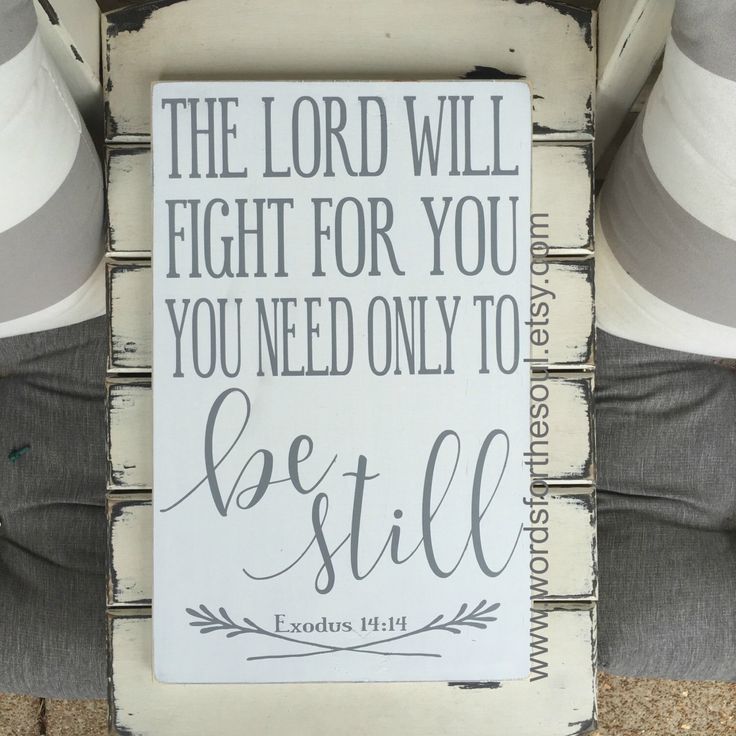 THE LORD WILL
FIGHT FOR YOU
YOU NEED ONLY TO
be
still
Exodus 14:14
www.wordsforthesoul.etsy.com